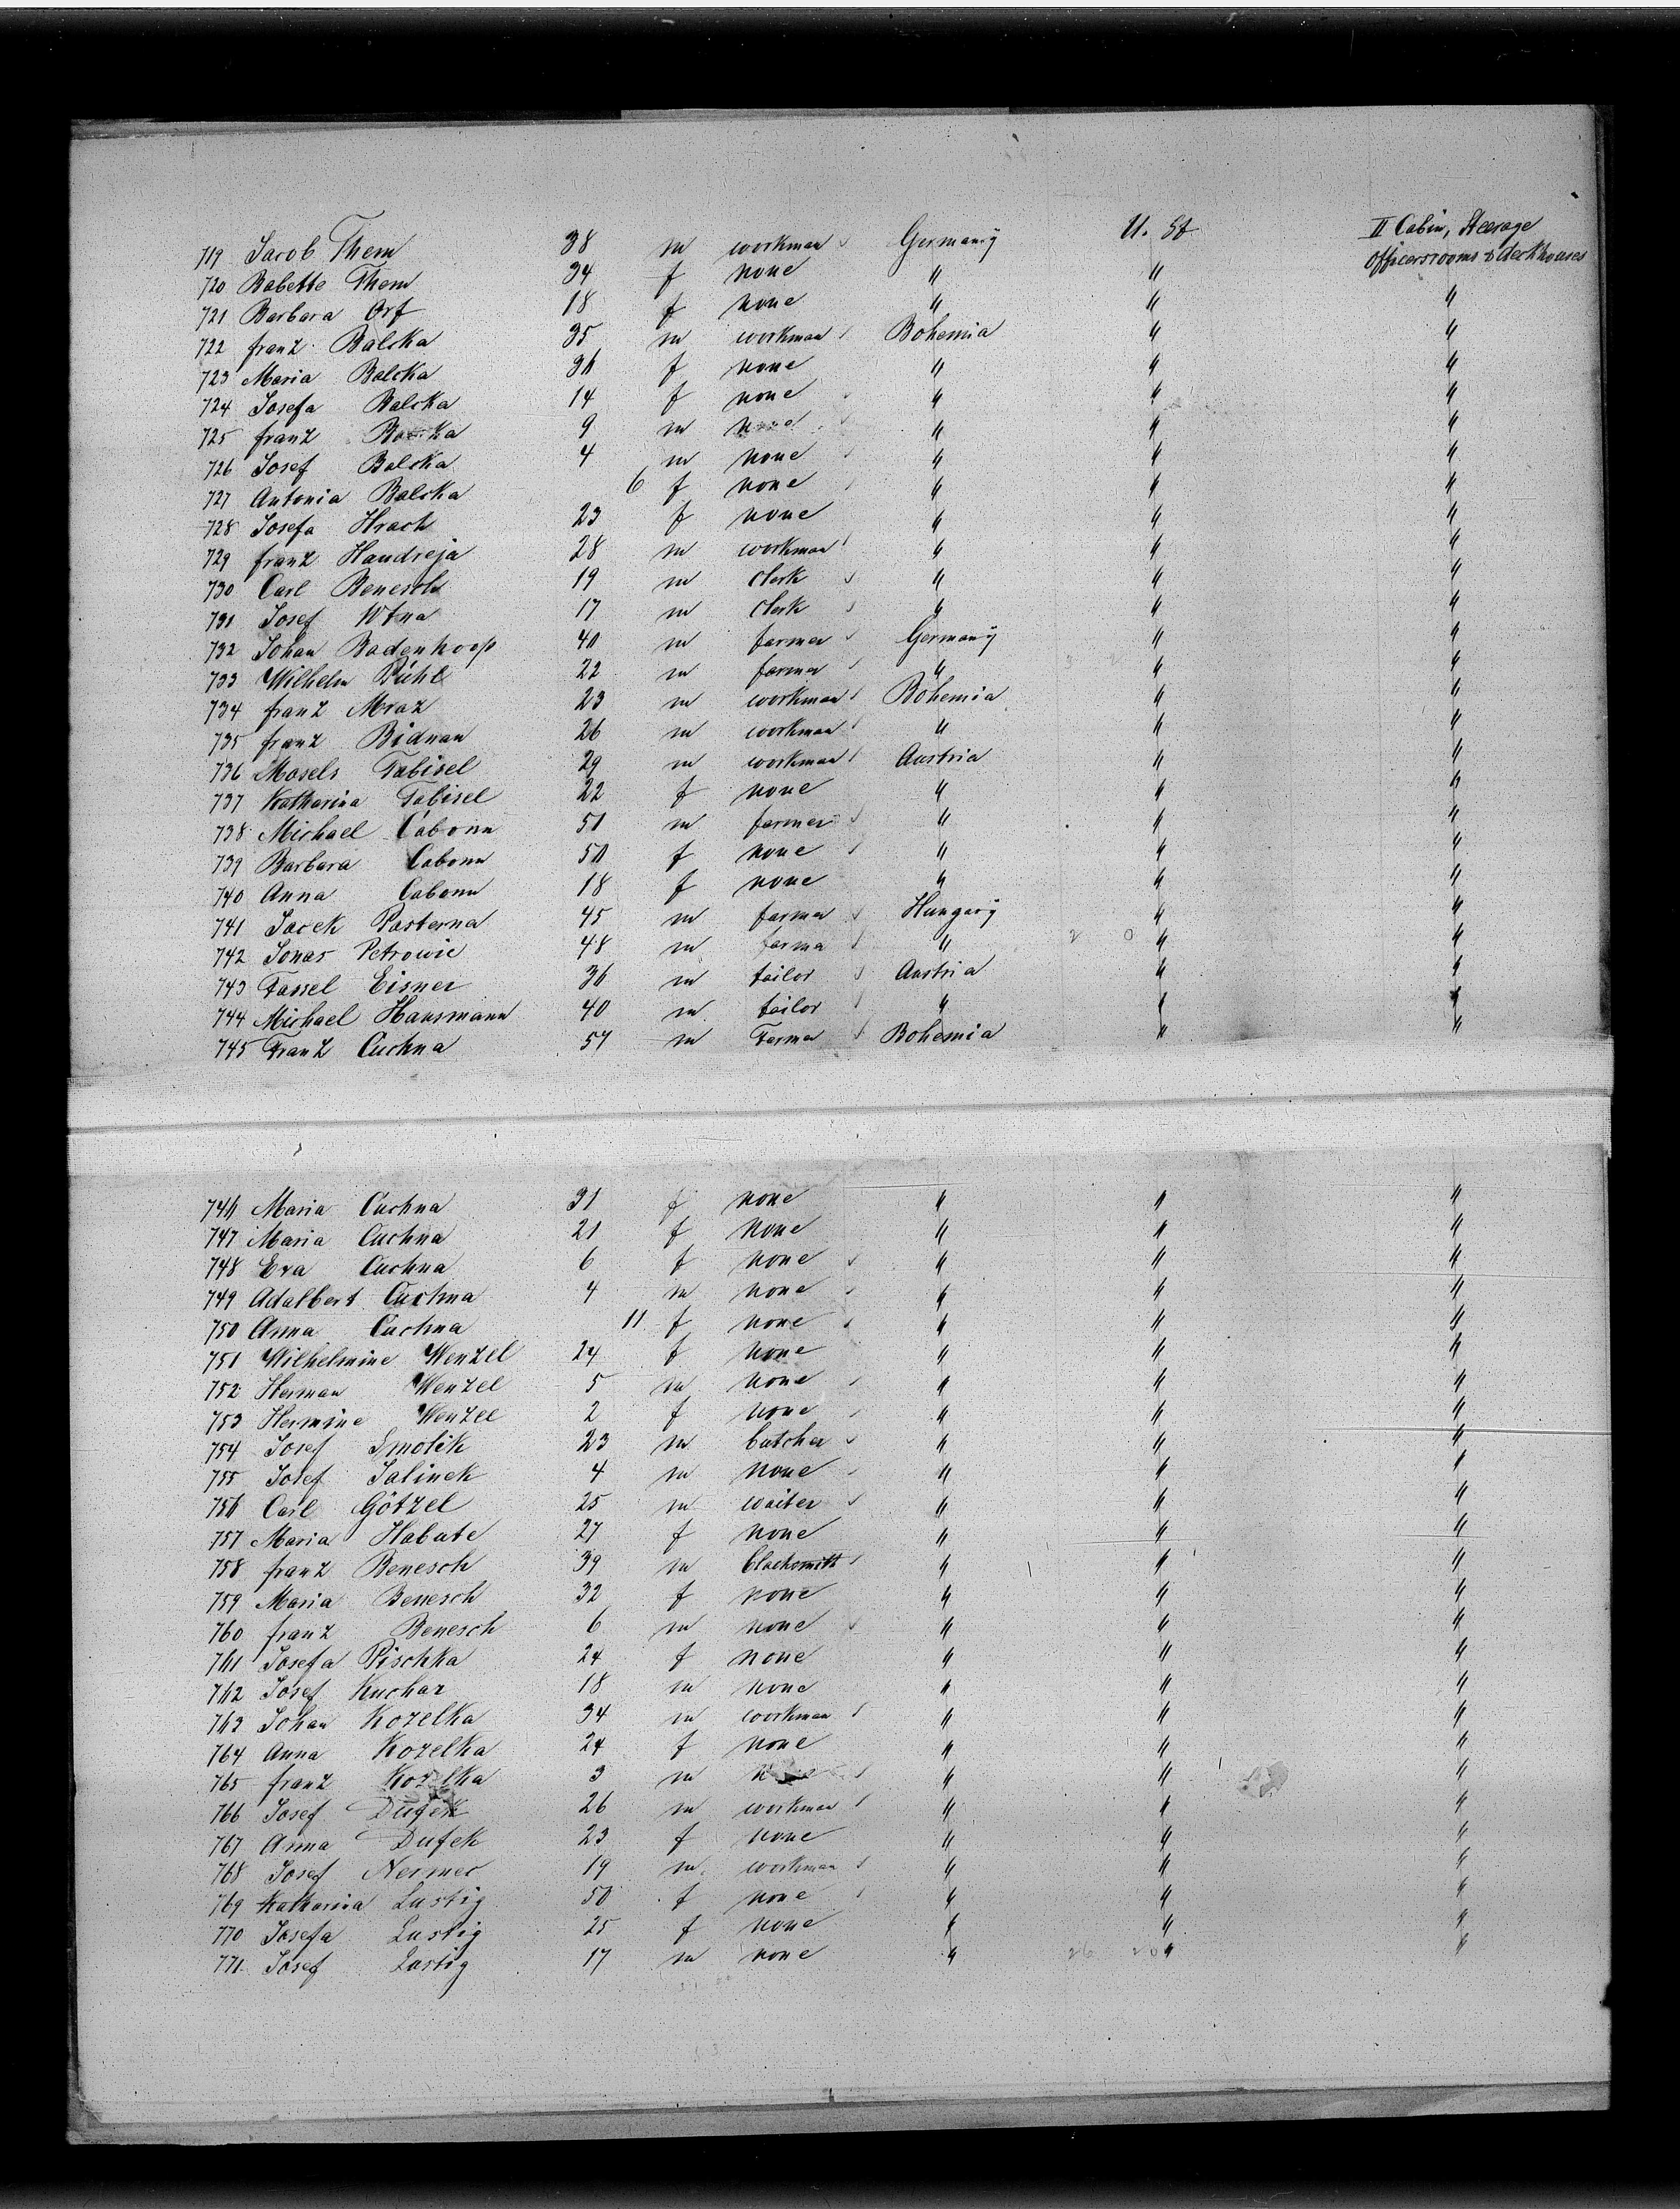 719 Jacob Them 38 m workman Germany U. St II Cabin, Steerage
officersrooms & deckhouses
720 Babette Them 34 f none " "
721 Barbara Orf 18 f none " " "
722 franz Balcka 35 m workman Bohemia " "
723 Maria Balcka 36 f none " " "
724 Josefa Balcka 14 f none " " "
725 franz Balcka 9 m none " " "
726 Josef Balcka 4 m none " " "
727 Antonia Balcka 6 f none " " "
728 Josefa Hrach 23 f none " " "
729 franz Haudreja 28 m workman " " "
730 Carl Benesch 19 m clerk " " "
731 Josef Wtna 17 m clerk " " "
732 Johan Badenhoop 40 m farmer Germany " "
733 Wilhelm Pühl 22 m farmer " " "
734 franz Mraz 23 m workman Bohemia " "
735 franz Bidnan 26 m workman " " "
736 Mosels Tabisel 29 m workman Austria " "
737 Katharina Tabisel 22 f none " " "
738 Michael Cabonn 51 m farmer " " "
739 Barbara Cabonn 50 f none " " "
740 Anna Cabonn 18 f none " " "
741 Jacek Pasterna 45 m farmer Hungary " "
742 Jonas Petrowic 48 m farmer " 2 0 " "
743 Fassel Eisner 36 m tailor Austria " "
744 Michael Hausmann 40 m tailor " " "
745 Franz Cuchna 57 m Farmer Bohemia " "
746 Maria Cuchna 31 f none " " "
747 Maria Cuchna 21 f none " " "
748 Eva Cuchna 6 f none " " "
749 Adalbert Cuchna 4 m none " " "
750 Anna Cuchna 11 f none " " "
751 Wilhelmine Wenzel 24 f none " " "
752 Herman Wenzel 5 m none " " "
753 Hermine Wenzel 2 f none " " "
754 Josef Smolik 23 m butcher " " "
755 Josef Salinek 4 m none " " "
756 Carl Götzel 25 m waiter " " "
757 Maria Habate 27 f none " " "
758 franz Benesch 39 m blacksmith " " "
759 Maria Benesch 32 f none " " "
760 franz Benesch 6 m none " " "
761 Josefa Pischka 24 f none " " "
762 Josef Kuchar 18 m none " " "
763 Johan Kozelka 34 m workman " " "
764 Anna Kozelka 24 f none " " "
765 franz Kozelka 3 m none " " "
766 Josef Dufek 26 m workman " " "
767 Anna Dufek 23 f none " " "
768 Josef Nermec 19 m workman " " "
769 Katharina Lustig 50 f none " " "
770 Josefa Lustig 25 f none " " "
771 Josef Lustig 17 m none " 26 20 " "